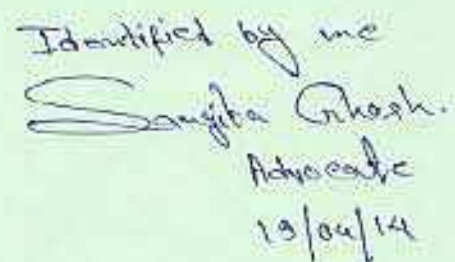 Identified by me
Sangita Ghosh.
Advocate
19/04/14